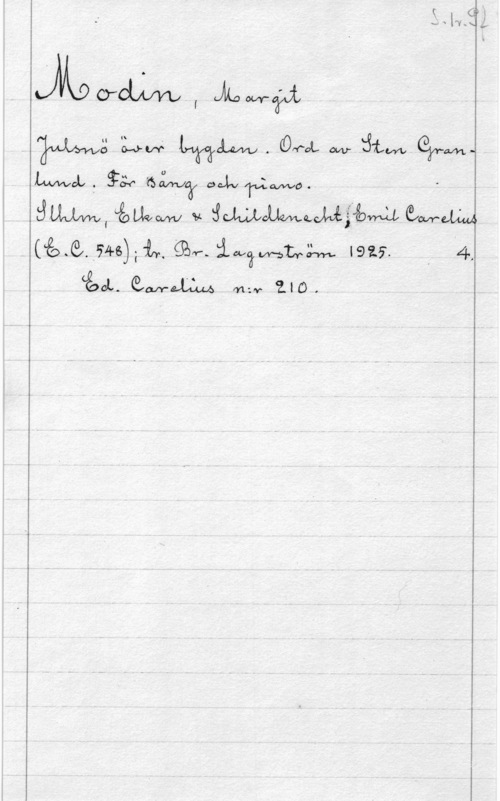 S. tr. 9f
Modin, Margit
Julsnö över bygden. Ord av Sten Gran-
lund. För sång och piano.
Sthlm, Elkan & Schildknecht, Emil Carelius
(E.C. 546); tr. Br. Lagerström 1925. 4.
Ed. Carelius n:r 210.